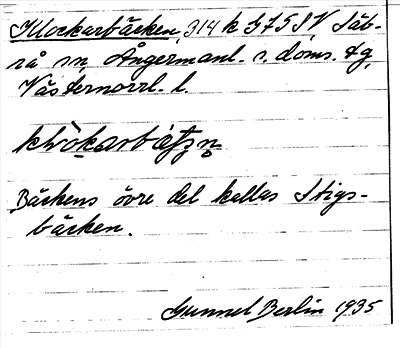 Klockarbäcken, 314 k G 7 5 SV, Säb-
rå sn, Ångermanl. s. doms. tg,
Västernorrl. l.
Bäckens övre del kallas Stigs-
bäcken.
Gunnel Berlin 1935